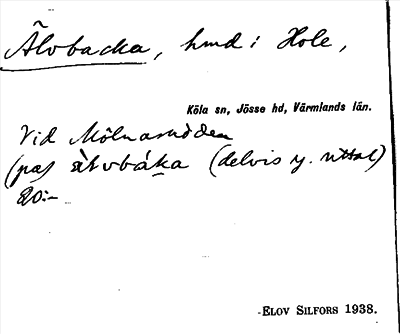 Älvbacka, hmd i Hole,
Köla sn, Jösse hd, Värmlands län.
Vid Mölnerudden
(på) ä̀ɫvbáka (delvis y. uttal)
20:-
ELOV SILFORS 1938.